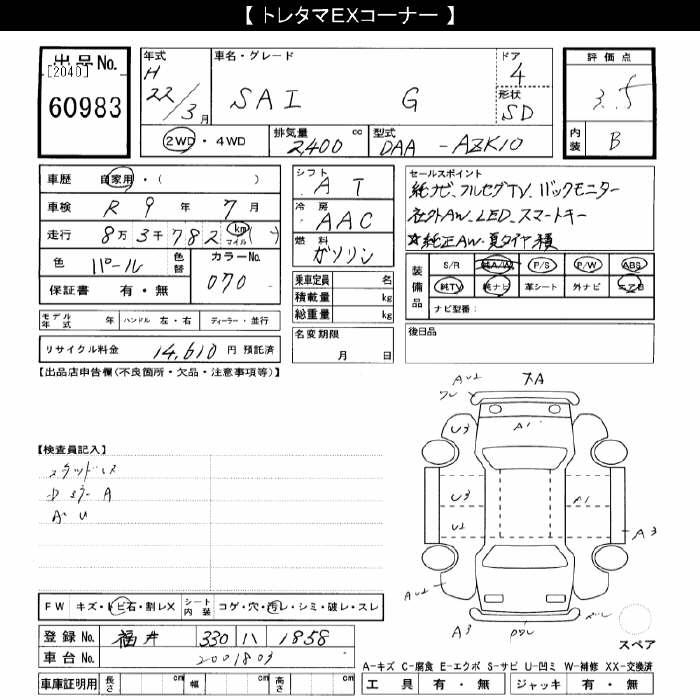 【 トレタマEXコーナー 】
出品No.
[2040]
60983
年式 H 22/3月
車名・グレード SAI G
ドア 4
形状 SD
評価点 3.5
内装 B
2WD・4WD
排気量 2,400 cc
型式 DAA-AZK10
車歴 自家用・( )
車検 R 9年 7月
走行 8万3千782 ( km マイル )
色 パール 色替 カラーNo. 070
保証書 有・無
モデル年式 年 ハンドル 左・右 ディーラー・並行
リサイクル料金 14,610 円 預託済
シフト AT
冷房 AAC
燃料 ガソリン
乗車定員 名
積載量 kg
総重量 kg
名変期限 月 日
セールスポイント
純ナビ、フルセグTV、バックモニター
社外AW、LED、スマートキー
☆純正AW・夏タイヤ積
装備品 S/R 純A/W P/S P/W ABS
純TV 純ナビ 革シート 外ナビ エアB
ナビ型番:
後日品
【出品店申告欄(不良箇所・欠品・注意事項等)】
【検査員記入】
スタッドレス
A・U
FW キズ・トビ石・割レX シート内装 コゲ・穴・汚レ・シミ・破レ・スレ
登録No. 福井 330 ハ 1858
車台No. 2001803
車庫証明用 長さ cm 幅 cm 高さ cm
AU2
A1
U3
U3
A1
U2
A3
AU2
A3
スペア
A-キズ C-腐食 E-エクボ S-サビ U-凹ミ W-補修 XX-交換済
工具 有・無 ジャッキ 有・無